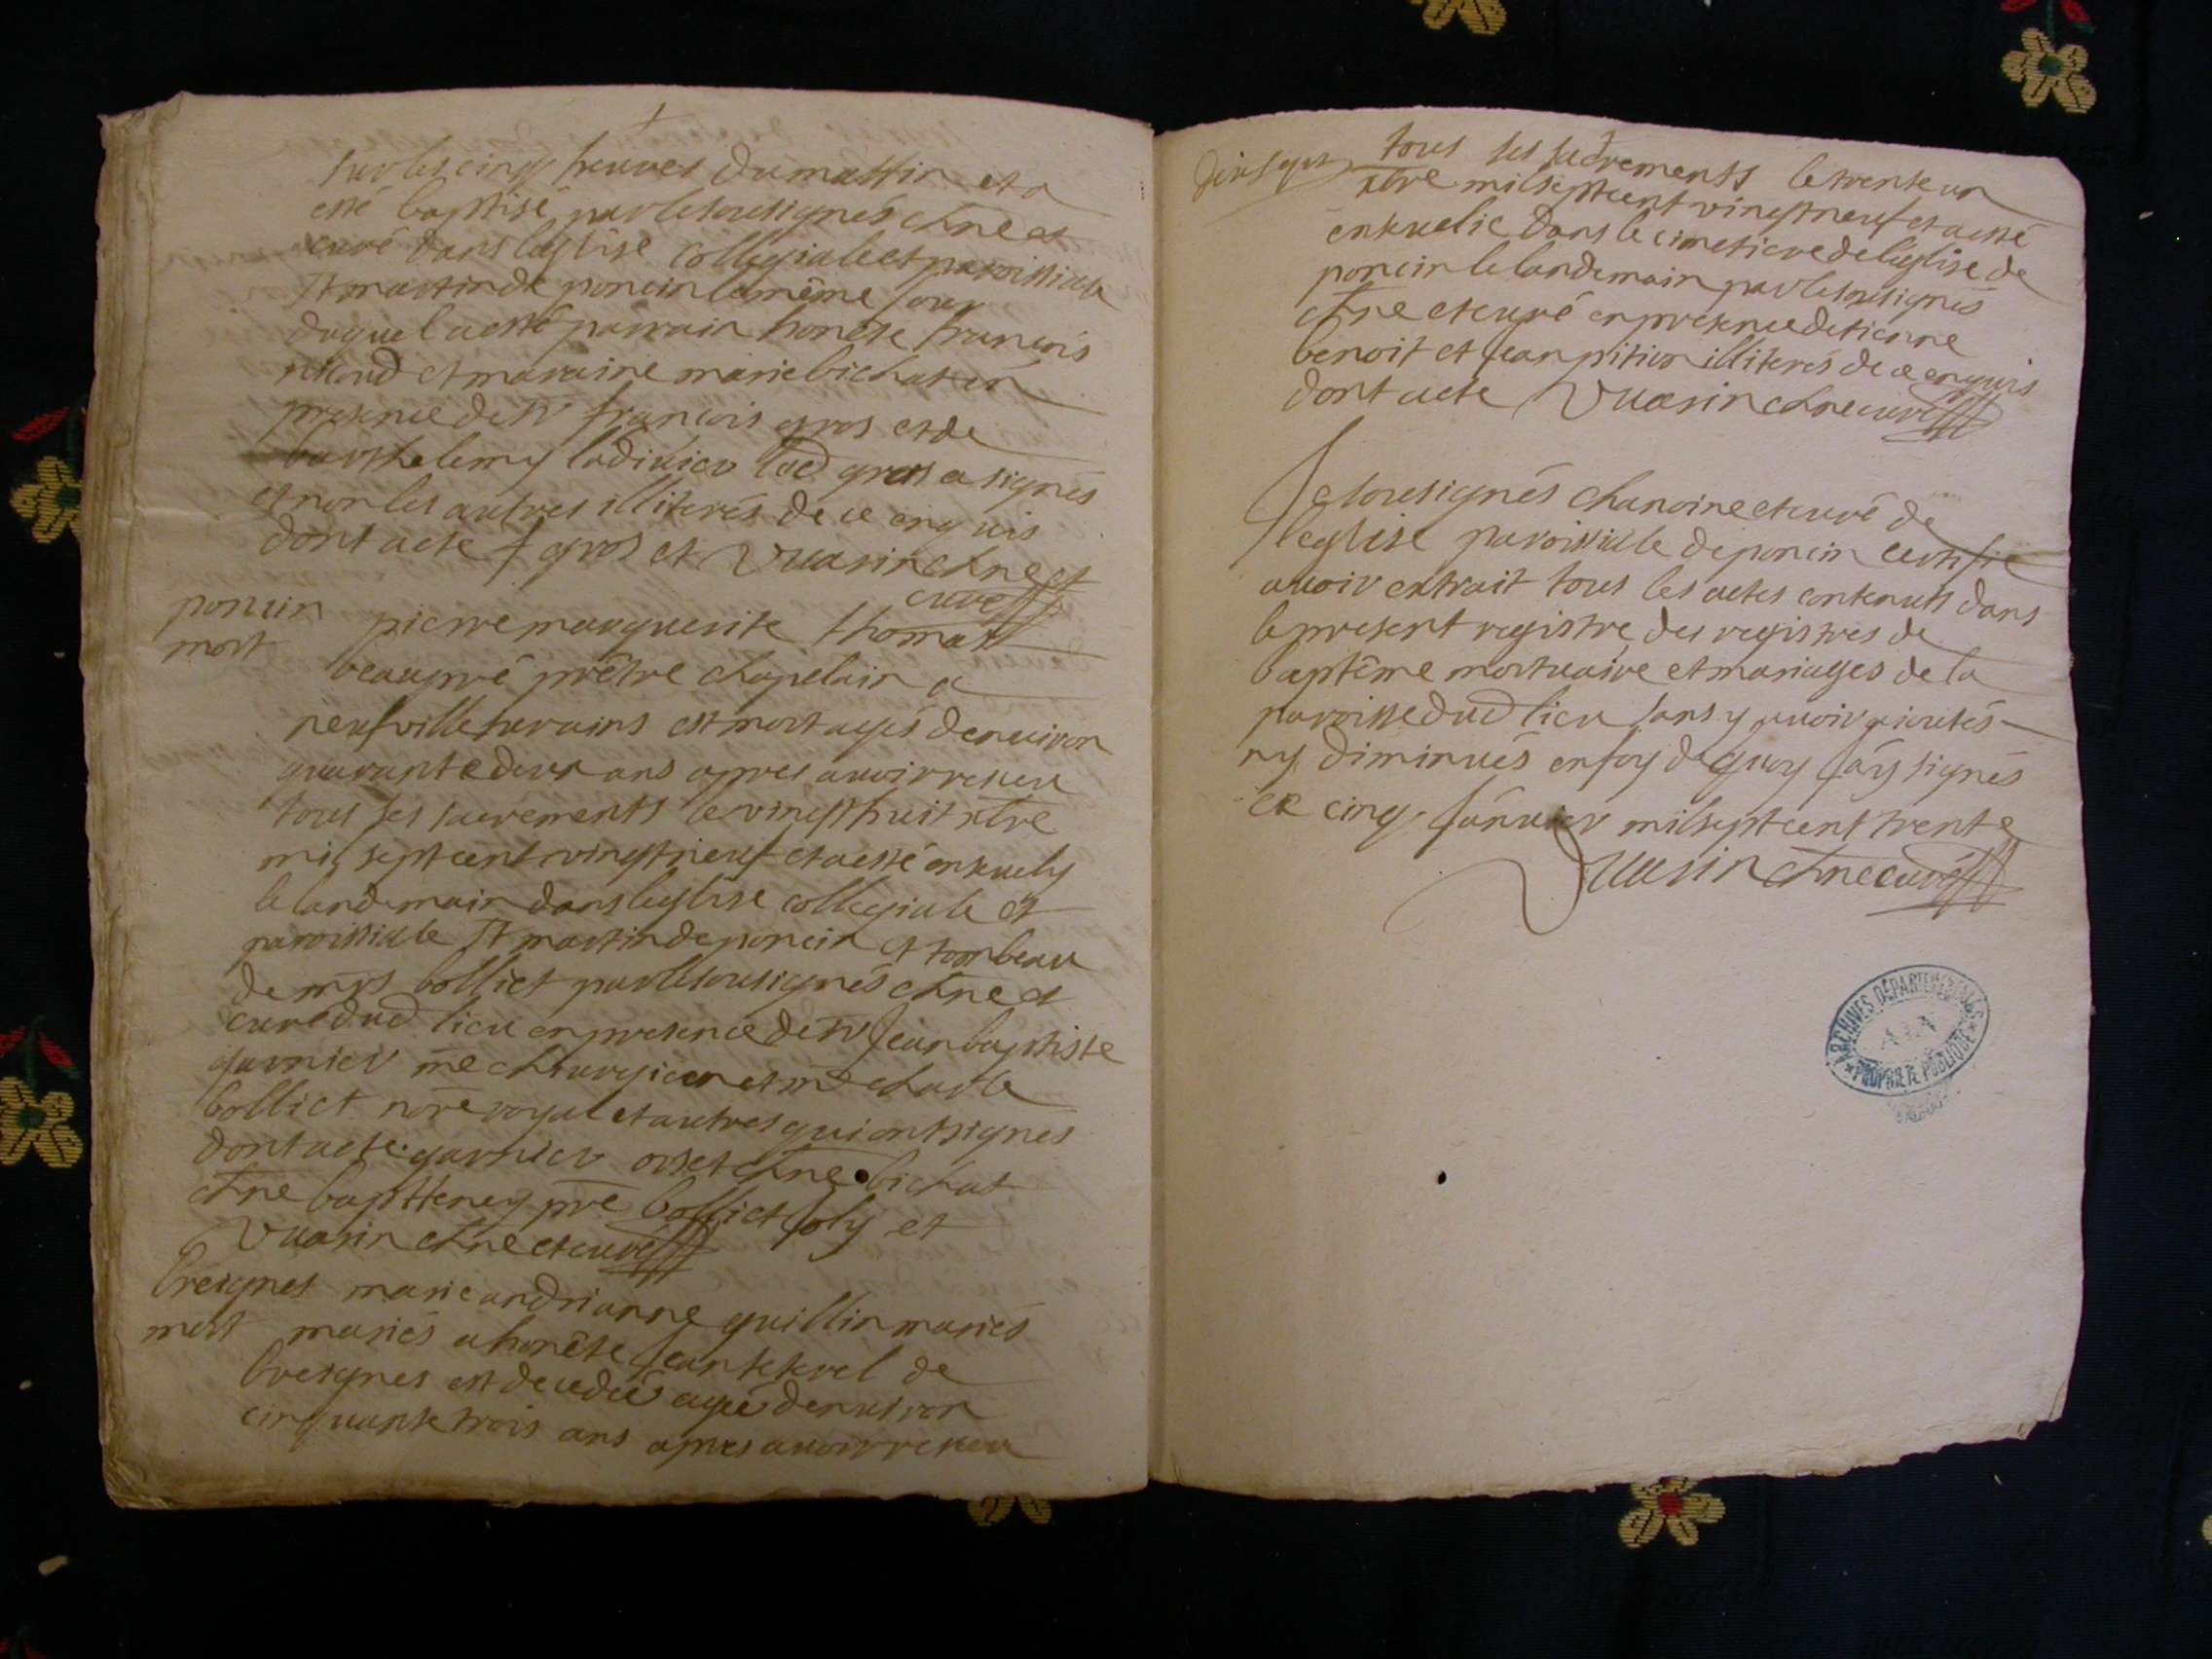 sur les cinq heures du mattin et a
esté baptisé par le sousignés chne et
curé dans leglise collegiale et paroissiale
St martin de poncin le même jour
duquel a esté parrain honete francois
nicoud et maraine marie bichat en
presence de Sr francois gros et de
barthelemy ladivier led gros a signés
et non les autres illiterés de ce enquis
dont acte f gros et Vuarin chne et
curé
poncin
mort
pierre marguerite thomas
beaupré prêtre chapelain a
neufville sur ains est mort agés denuiron
quarante deux ans appres auoir receu
tous ses sacrements le vingt huit xbre
mil sept cent vingt neuf et a esté enseuely
le landemain dans leglise collegiale et
paroissiale St martin de poncin et tombeau
de mrs bolliet par le sousignés chne et
curé dud lieu en presence de Sr Jean baptiste
garnier me chirurgien et me charle
bolliet nore royal et autres qui ont signés
dont acte garnier orset chne bichat
chne baptteney pre bolliet Joly et
Vuarin chne et curé
breignes
mort
marie andrianne guillin mariés
mariés a honête Jean teterel de
breignes est decedée agée denuiron
cinquante trois ans apres auoir receu
tous ses sacrements le trente un
xbre mil sept cent vingt neuf et a esté
enseuelie dans le cimetiere de leglise de
poncin le landemain par le sousignés
chne et curé en presence detienne
benoit et Jean pition illiterés de ce enquis
dont acte Vuarin chne curé
Je sousignés chanoine et curé de
leglise paroissiale de poncin certifie
auoir extrait tous les actes contenus dans
le present registre des registres de
baptême mortuaire et mariages de la
paroisse dud lieu sans y auoir ajoutés
ny diminués en foy de quoy Jay signés
ce cinq Janvier mil sept cent trente
Vuarin chne curé
ARCHIVES DÉPARTEMENTALES
AIN
PROPRIÉTÉ PUBLIQUE